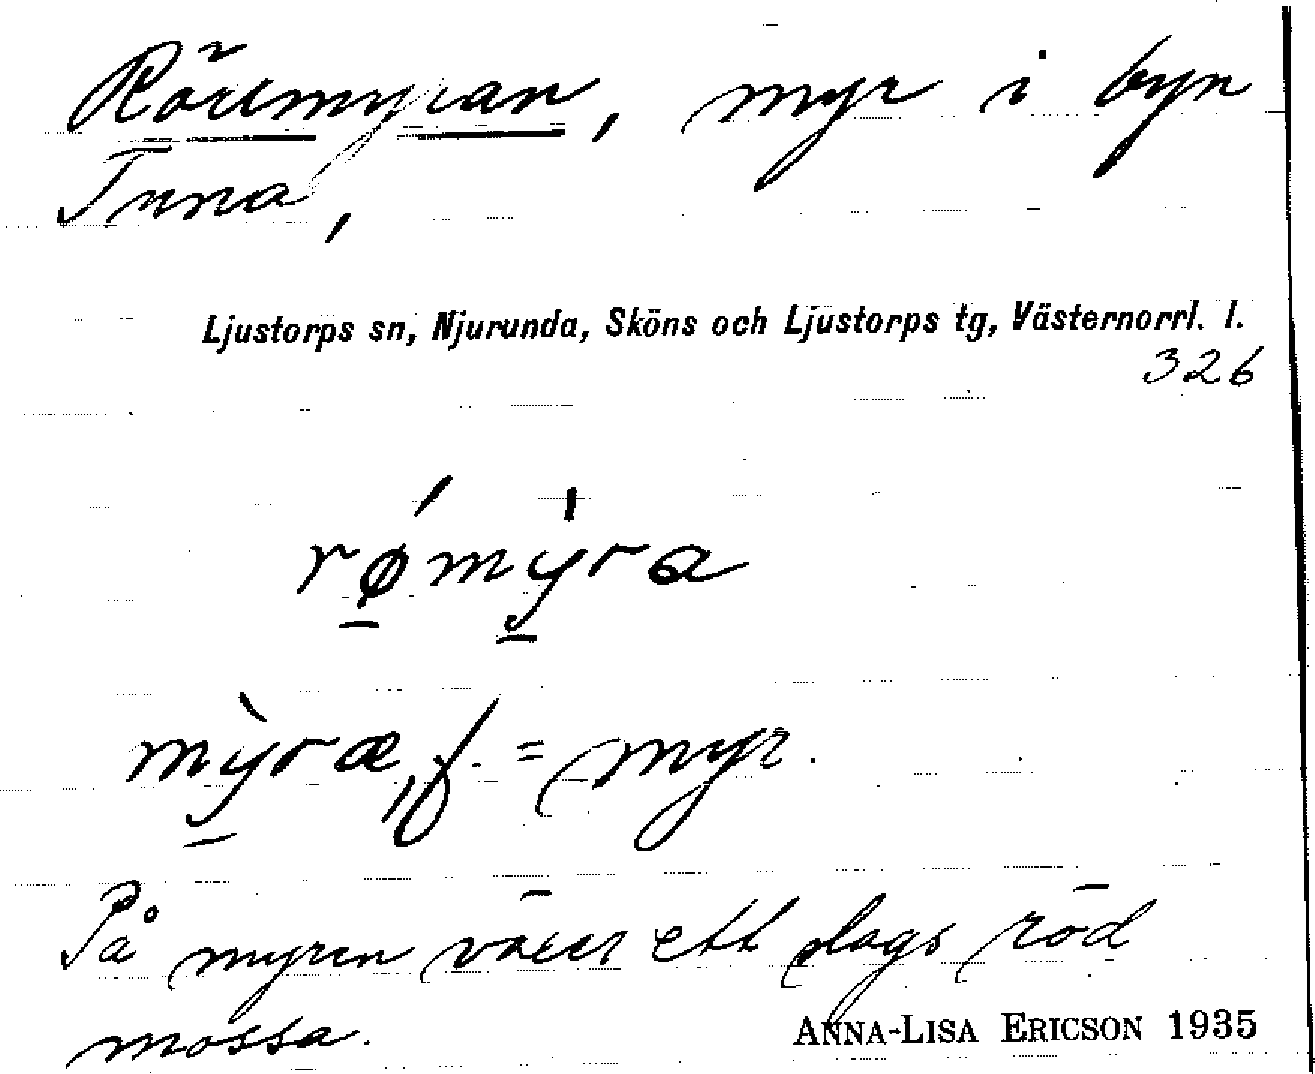 Rödmyran, myr i byn
Tuna,
Ljustorps sn, Njurunda, Sköns och Ljustorps tg, Västernorrl. l.
326
rømyra
myræ, f. = myr.
På myren växer ett slags röd
mossa.
ANNA-LISA ERICSON 1935